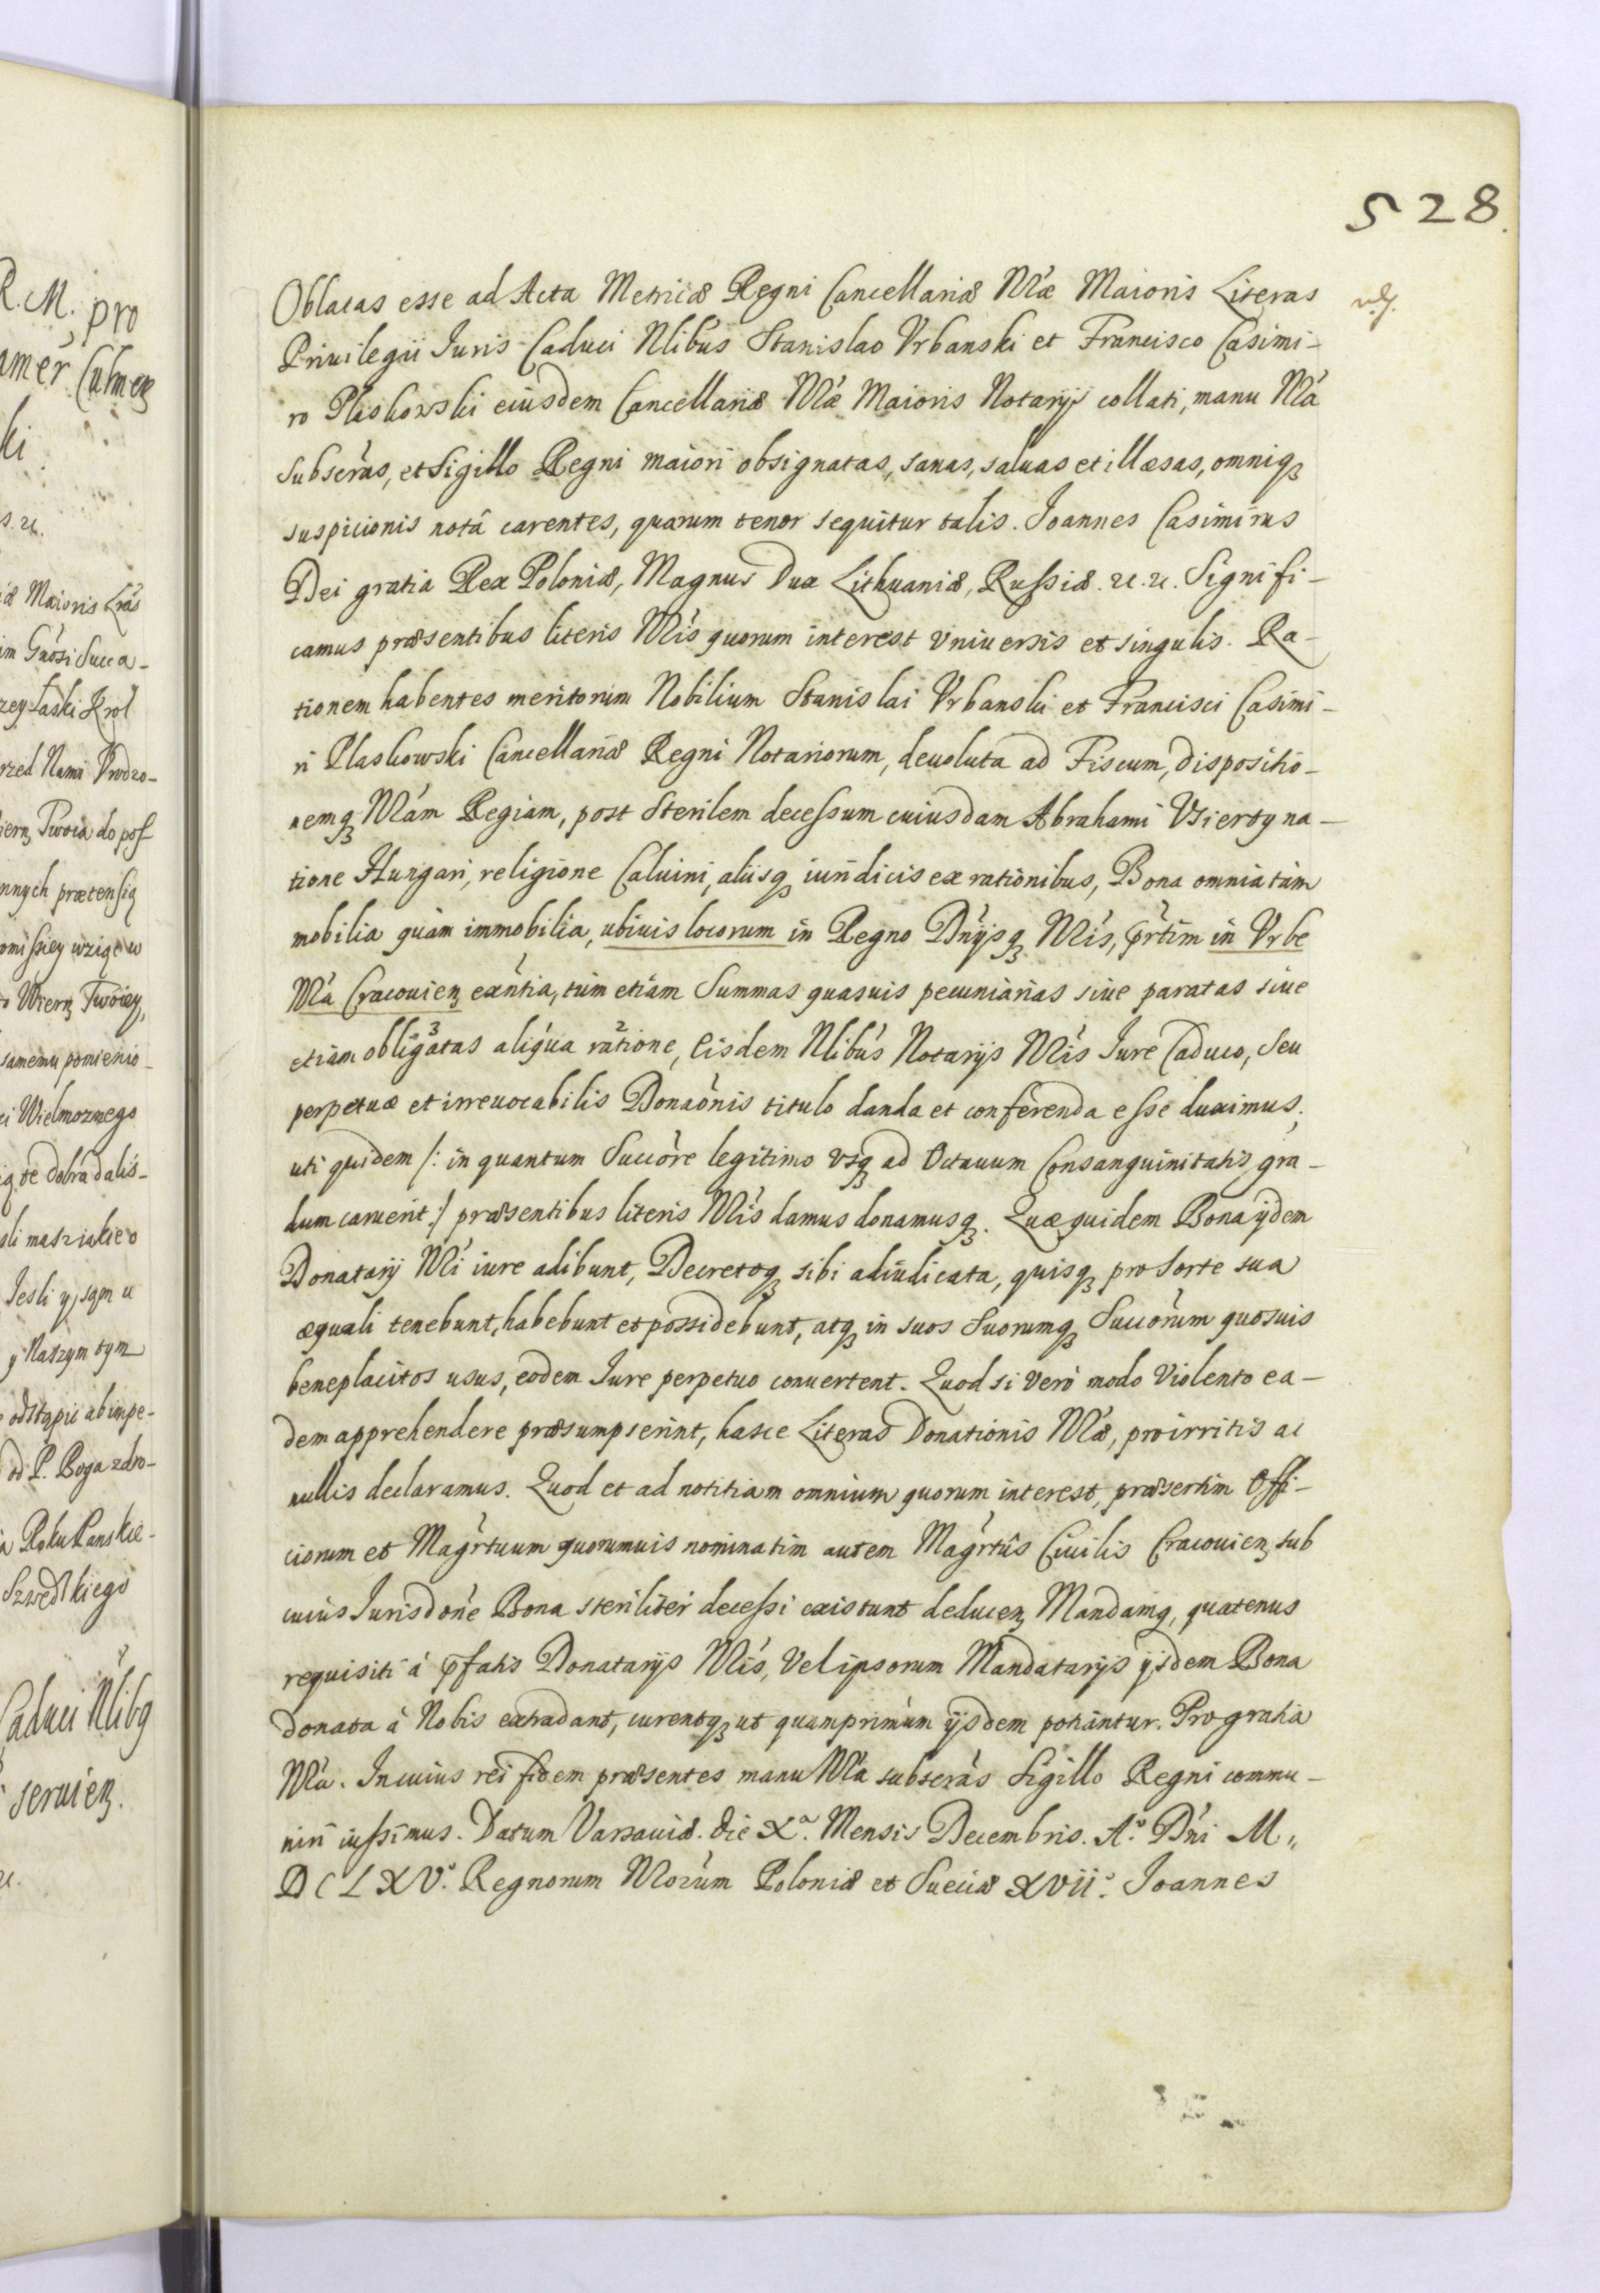 528.
Oblatas esse ad Acta Metricæ Regni Cancellariæ Nr̃æ Maioris Literas
Priuilegii Iuris Caduci Nlibus Stanislao Vrbanski et Francisco Casimi-
ro Plaskowski eiusdem Cancellariæ Nr̃æ Maioris Notarijs collati, manu Nr̃a
subscr̃as, et Sigillo Regni maiori obsignatas, sanas, saluas et illæsas, omniq3
suspicionis notâ carentes, quarum tenor sequitur talis. Joannes Casimirus
Dei gratia Rex Poloniæ, Magnus Dux Lithuaniæ, Russiæ. &. &. Signifi-
camus præsentibus literis Nr̃is quorum interest vniuersis et singulis. Ra-
tionem habentes meritorum Nobilium Stanislai Vrbanski et Francisci Casimi-
ri Plaskowski Cancellariæ Regni Notariorum, deuoluta ad Fiscum, dispositio-
nemq3 Nr̃am Regiam, post sterilem decessum cuiusdam Abrahami Vsierty na-
tione Hungari, religione Caluini, alijsq3 iuridicis ex rationibus, Bona omnia tàm
mobilia quàm immobilia, ubiuis locorum in Regno Dn̄ijsq3 Nr̃is, pr̃tim in Vrbe
Nr̃a Cracouien3 exñtia, tùm etiam Summas quasuis pecuniarias siue paratas siue
etiam obligatas aliqua ratione, Eisdem Nlibus Notarijs Nr̃is Iure Caduco, seu
perpetuæ et irreuocabilis Donaõnis titulo danda et conferenda esse duximus,
uti quidem /: in quantum Succõre legitimo vsq3 ad Octauum Consanguinitatis gra-
dum caruerit :/ præsentibus literis Nr̃is damus donamusq3. Quæ quidem Bona ijdem
Donatarij Nr̃i iure adibunt, Decretoq3 sibi adiudicata, quisq3 pro sorte sua
æquali tenebunt, habebunt et possidebunt, atq3 in suos Suorumq3 Succõrum quosuis
beneplacitos usus, eodem Iure perpetuo conuertent. Quod si verò modo violento ea-
dem apprehendere præsumpserint, hasce Literas Donationis Nr̃æ, pro irritis ac
nullis declaramus. Quod et ad notitiam omnium quorum interest, præsertim Offi-
ciorum et Magr̃tuum quorumuis nominatim autem Magr̃tûs Ciuilis Cracouien3 sub
cuius Iurisdoñe Bona steriliter decessi existunt deducen3 Mandamq3, quatenus
requisiti à p̃fatis Donatarijs Nr̃is, vel ipsorum Mandatarijs ijsdem Bona
donata à Nobis extradant, curentq3 ut quamprimum ijsdem potiantur. Pro gratia
Nr̃a. In cuius rei fidem præsentes manu Nr̃a subscr̃as Sigillo Regni commu-
niri iussimus. Datum Varsauiæ. die Xª. Mensis Decembris. Aº. Dñi M„
DCLXVº. Regnorum Nr̃orum Poloniæ et Sueciæ XVIIº. Joannes